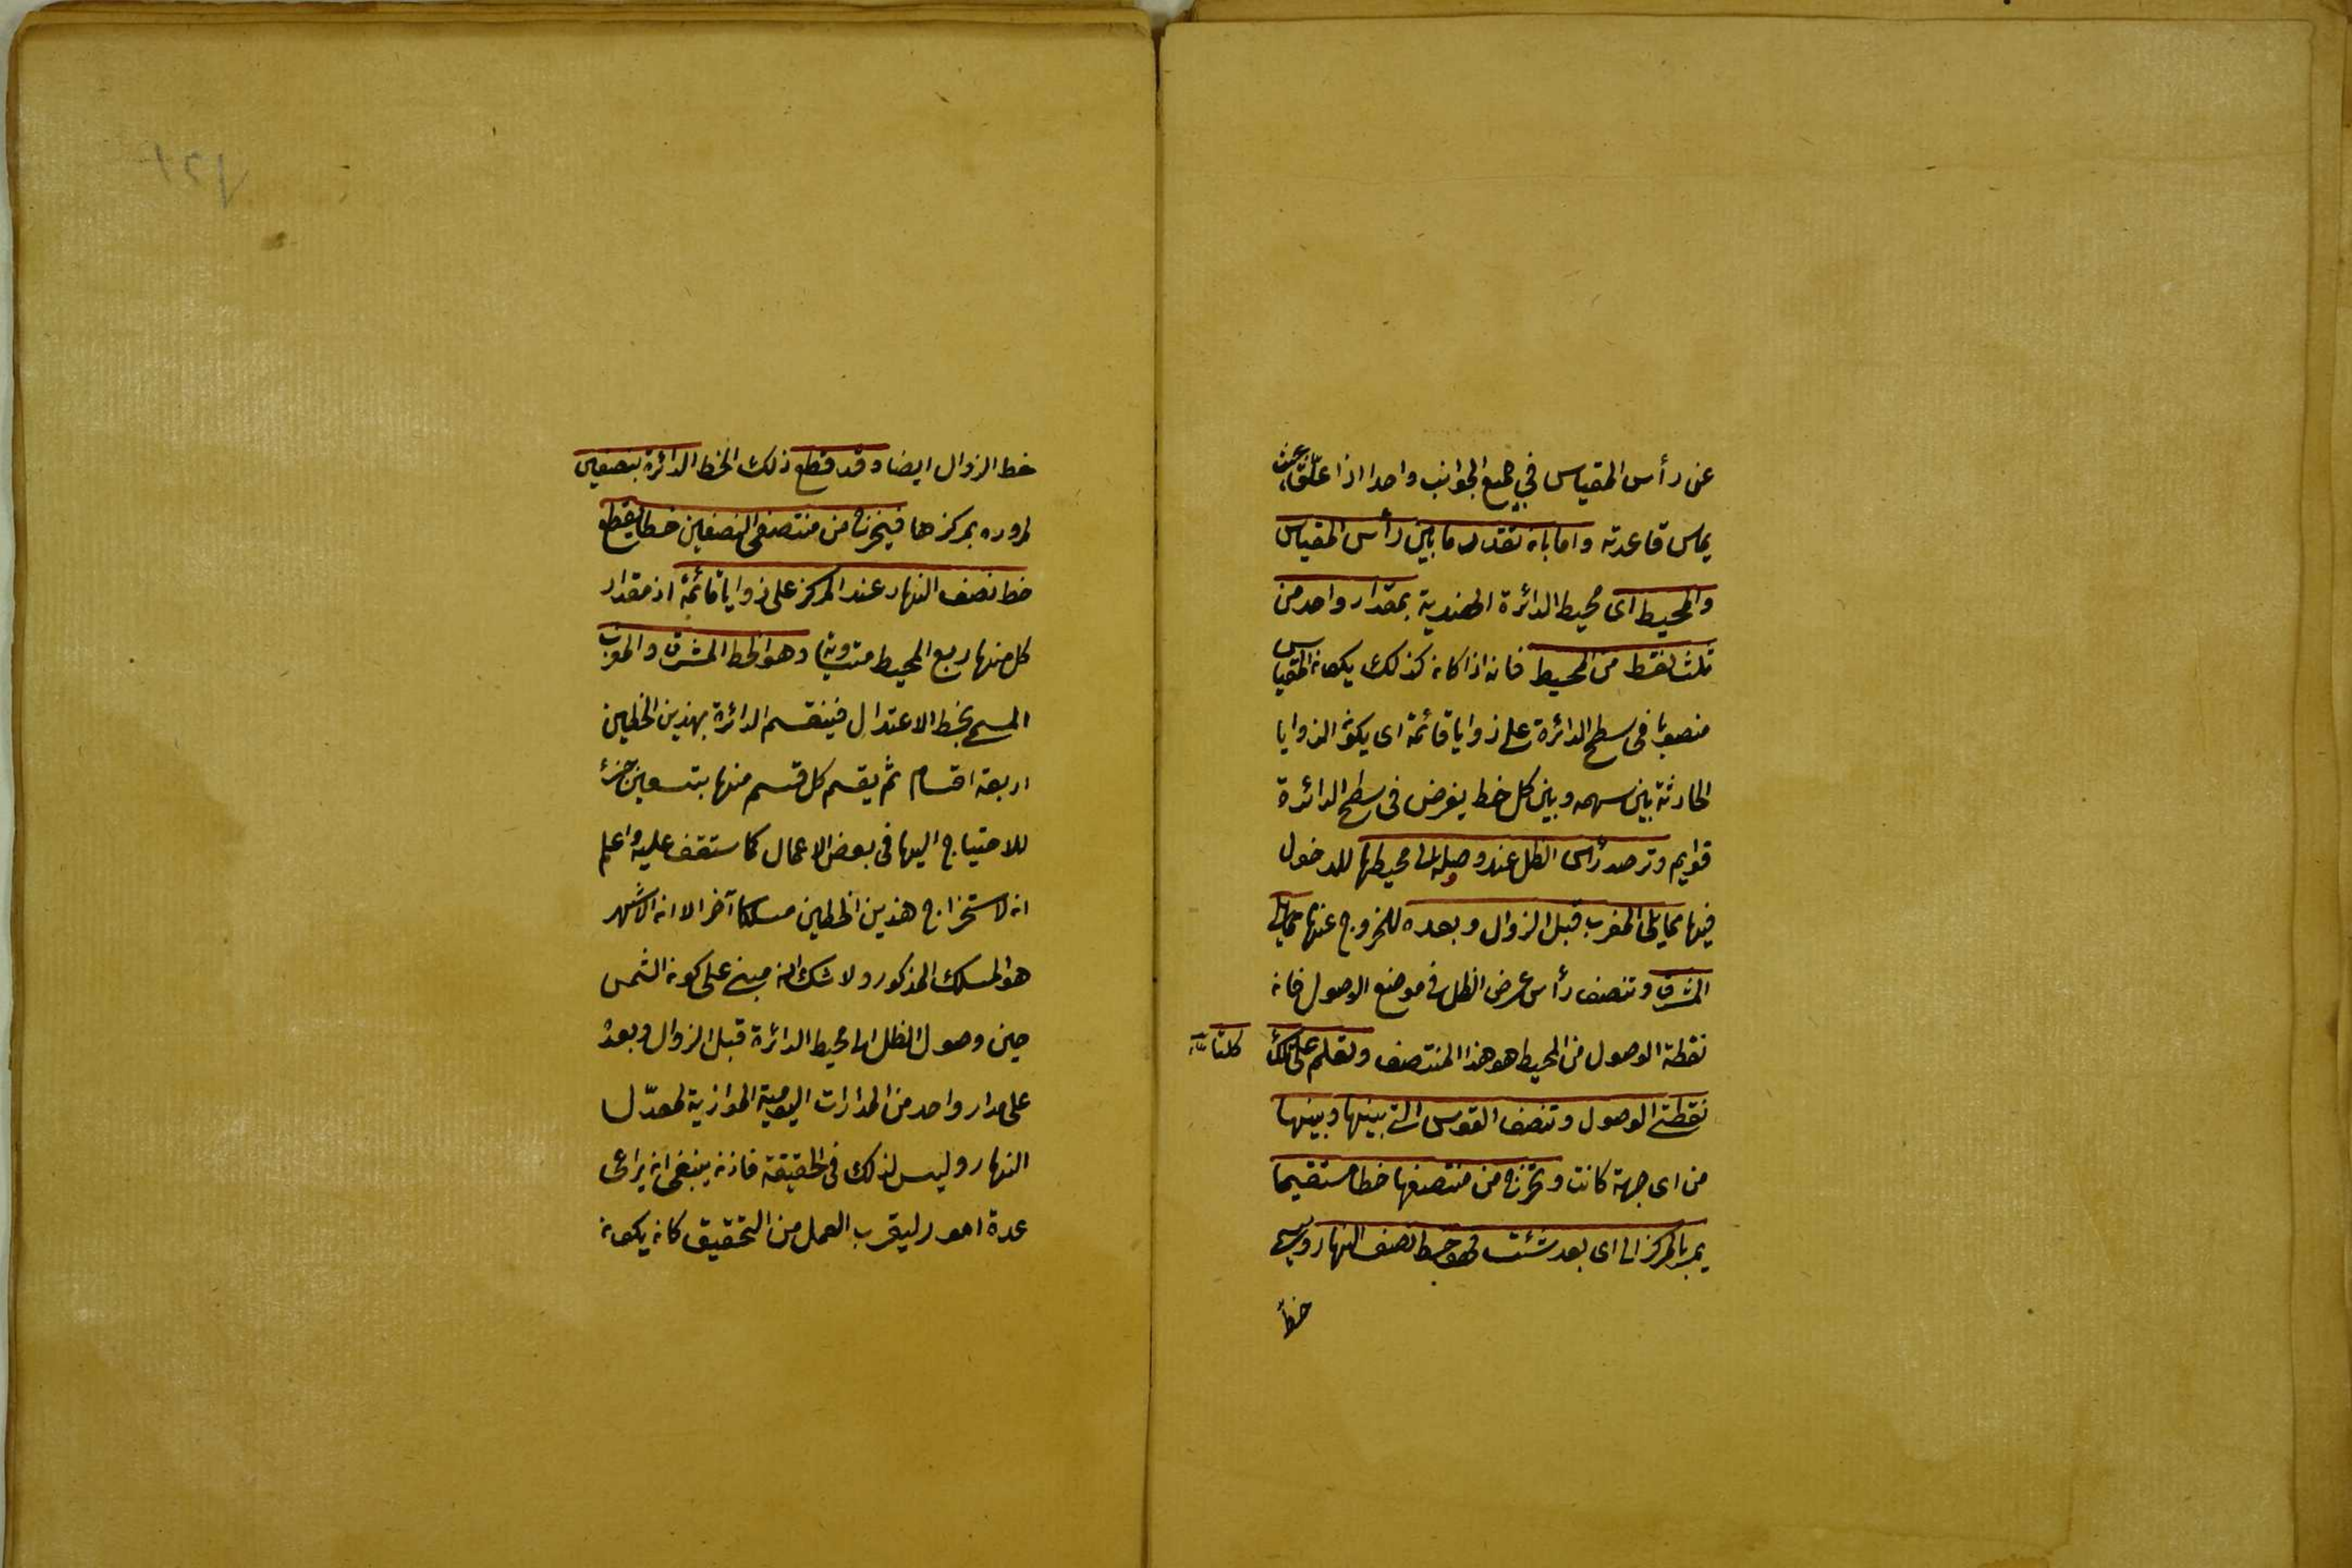 عن رأس المقياس في جميع الجوانب واحدا اذا علّق بحيث
يماس قاعدته واما بان تقدر ما بين رأس المقياس
والمحيط اى محيط الدائرة الهندية بمقدار واحد من
ثلث نقط من المحيط فانه اذا كان كذلك يكون المقياس
منصوبا فى سطح الدائرة على زوايا قائمة اى يكون الزوايا
الحادثة بين سهمه وبين كل خط يفرض فى سطح الدائرة
قوايم وترصد رأس الظل عند وصوله الى محيطها للدخول
فيها مما يلى المغرب قبل الزوال وبعده للخروج عنها مما يلى
المشرق وتنصف رأس عرض الظل فى موضع الوصول فان
نقطة الوصول من المحيط هو هذا المنتصف وتعلم على تلك
كلتا
نقطتى الوصول وتنصف القوس التى بينها وبينها
من اى جهة كانت وتخرج من منتصفها خطا مستقيما
يمر بالمركز الى اى بعد شئت فهو خط نصف النهار ويسمى
خط
١٢٧
خط الزوال ايضا وقد قطع ذلك الخط الدائرة بنصفين
لمروره بمركزها فيخرج من منتصفى النصفين خطا يقطع
خط نصف النهار عند المركز على زوايا قائمة اذ مقدار
كل منها ربع المحيط متساوية وهو الخط المشرق والمغرب
المسمى بخط الاعتدال فينقسم الدائرة بهذين الخطين
اربعة اقسام ثم يقسم كل قسم منها بتسعين جزء
للاحتياج اليها فى بعض الاعمال كما ستقف عليه واعلم
ان لاستخراج هذين الخطين مسلكا آخر الا ان الاشهر
هو المسلك المذكور ولا شك انه مبنى على كون الشمس
حين وصول الظل الى محيط الدائرة قبل الزوال وبعده
على مدار واحد من المدارات اليومية الموازية لمعدّل
النهار وليس كذلك فى الحقيقة فاذن ينبغى ان يراعى
عدة امور ليقرب العمل من التحقيق كان يكون